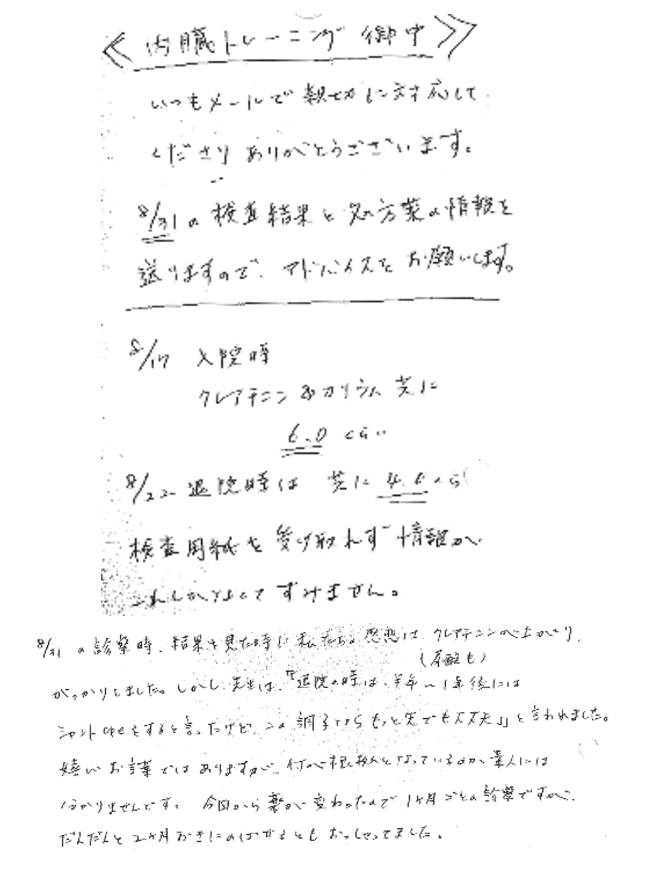 ≪内臓トレーニング 御中≫
いつもメールで親切に対応して
くださり ありがとうございます。
8/31の検査結果と処方薬の情報を
送りますので、アドバイスを お願いします。
8/17 入院時
クレアチニン カリウム 共に
6.0 くらい
8/22 退院時は 共に 4.0くらい
検査用紙を受け取れず 情報が
これしかなくて すみません。
8/31 の診察時、結果を見た時に私たちの感想は、クレアチニンが上がり、
(尿酸も)
がっかりしました。しかし先生は、『退院の時は、半年〜1年後には
シャントopeをすると言ったけど、この調子ならもっと先でも大丈夫』と言われました。
嬉しいお言葉ではありますが、何が根拠となっているのか、素人には
分かりませんです。 今回から薬が変わったので 1ヶ月ごとの診察ですが、
だんだんと2ヶ月おきにのばすともおっしゃってました。